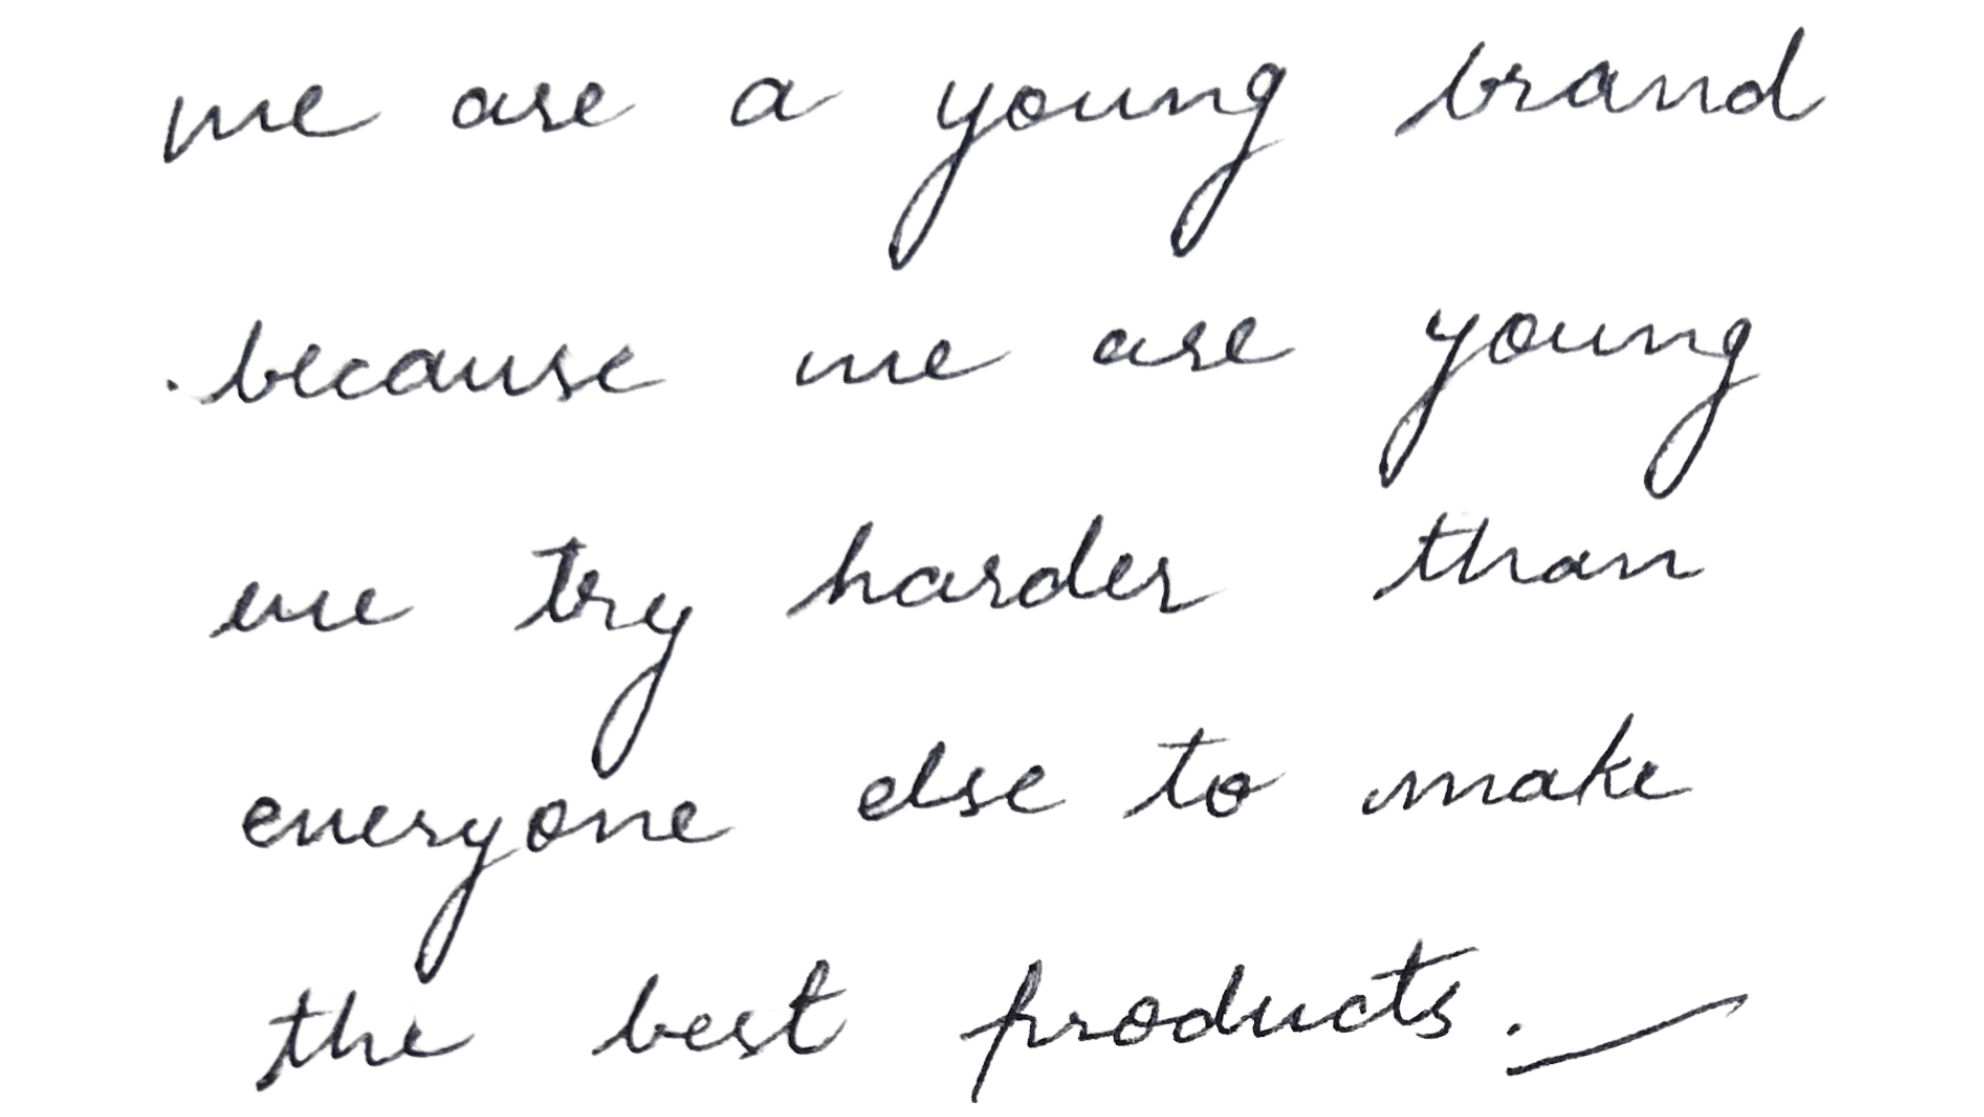 we are a young brand
because we are young
we try harder than
everyone else to make
the best products.